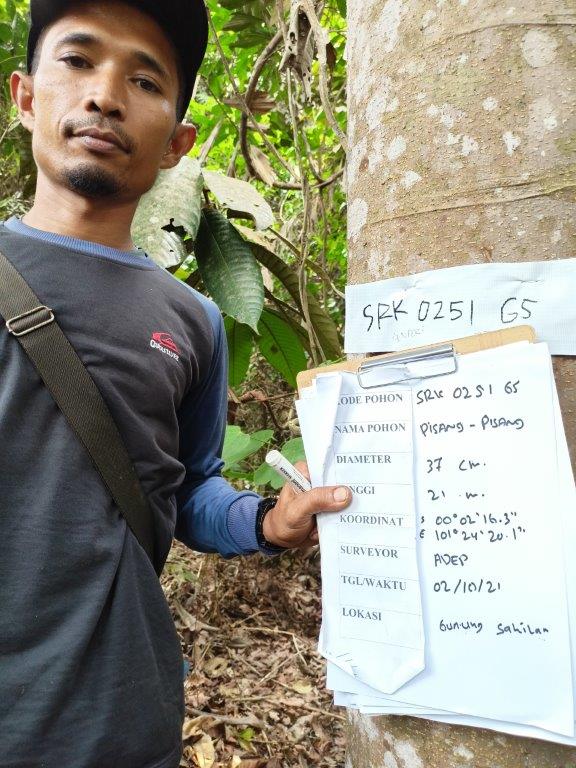 SRK 0251 G5
KODE POHON SRK 0251 G5
NAMA POHON PISANG - PISANG
DIAMETER 37 cm.
NGGI 21 m.
KOORDINAT S 00° 02' 16.3"
E 101° 24' 20.1"
SURVEYOR ADEP
TGL/WAKTU 02/10/21
LOKASI Gunung Sahilan
QUIKSILVER